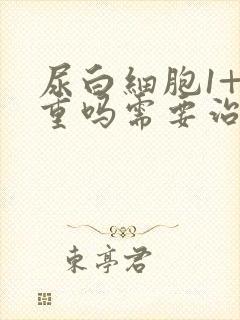 尿白細胞1+
重吗需要治
東亭君